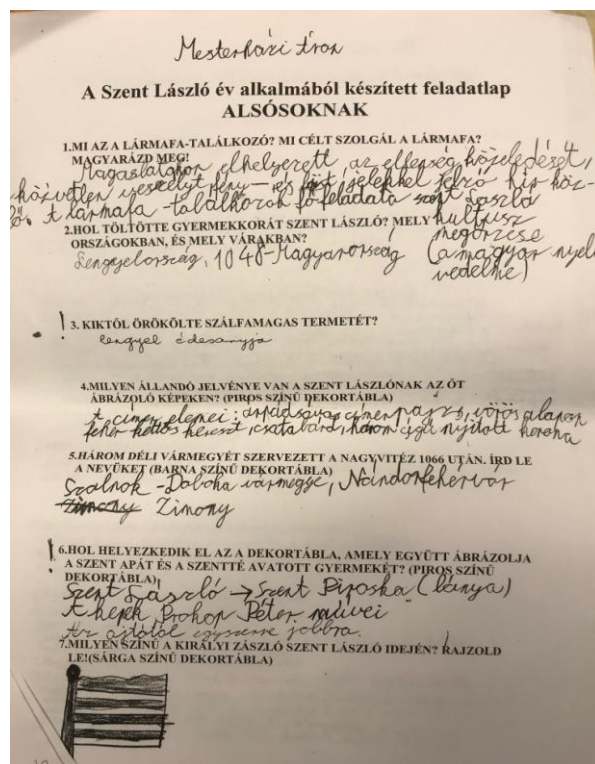 Mesterházi Áron
A Szent László év alkalmából készített feladatlap
ALSÓSOKNAK
1.MI AZ A LÁRMAFA-TALÁLKOZÓ? MI CÉLT SZOLGÁL A LÁRMAFA?
MAGYARÁZD MEG!
Magaslatokon elhelyezett, az ellenség közeledését,
közvetlen veszélyt fény- és füst jelekkel jelző hír köz-
lő. A lármafa-találkozók fő feladata szent László
kultusz
megőrzése
(a magyar nyelv
védelme)
2.HOL TÖLTÖTTE GYERMEKKORÁT SZENT LÁSZLÓ? MELY
ORSZÁGOKBAN, ÉS MELY VÁRAKBAN?
Lengyelország, 1048-Magyarország
! 3. KIKTŐL ÖRÖKÖLTE SZÁLFAMAGAS TERMETÉT?
lengyel édesanyja
4.MILYEN ÁLLANDÓ JELVÉNYE VAN A SZENT LÁSZLÓNAK AZ ŐT
ÁBRÁZOLÓ KÉPEKEN? (PIROS SZÍNŰ DEKORTÁBLA)
A címer elemei: árpádsávos címerpajzs, vörös alapon
fehér kettős kereszt, csatabárd, három ágú nyitott korona
5.HÁROM DÉLI VÁRMEGYÉT SZERVEZETT A NAGYVITÉZ 1066 UTÁN. ÍRD LE
A NEVÜKET (BARNA SZÍNŰ DEKORTÁBLA)
Szolnok-Doboka vármegye, Nándorfehérvár
Zimony Zimony
! 6.HOL HELYEZKEDIK EL AZ A DEKORTÁBLA, AMELY EGYÜTT ÁBRÁZOLJA
A SZENT APÁT ÉS A SZENTTÉ AVATOTT GYERMEKÉT? (PIROS SZÍNŰ
DEKORTÁBLA)
Szent László → Szent Piroska (lánya)
A képek Prokop Péter művei
Az ajtótól egyszerre jobbra.
7.MILYEN SZÍNŰ A KIRÁLYI ZÁSZLÓ SZENT LÁSZLÓ IDEJÉN? RAJZOLD
LE!(SÁRGA SZÍNŰ DEKORTÁBLA)